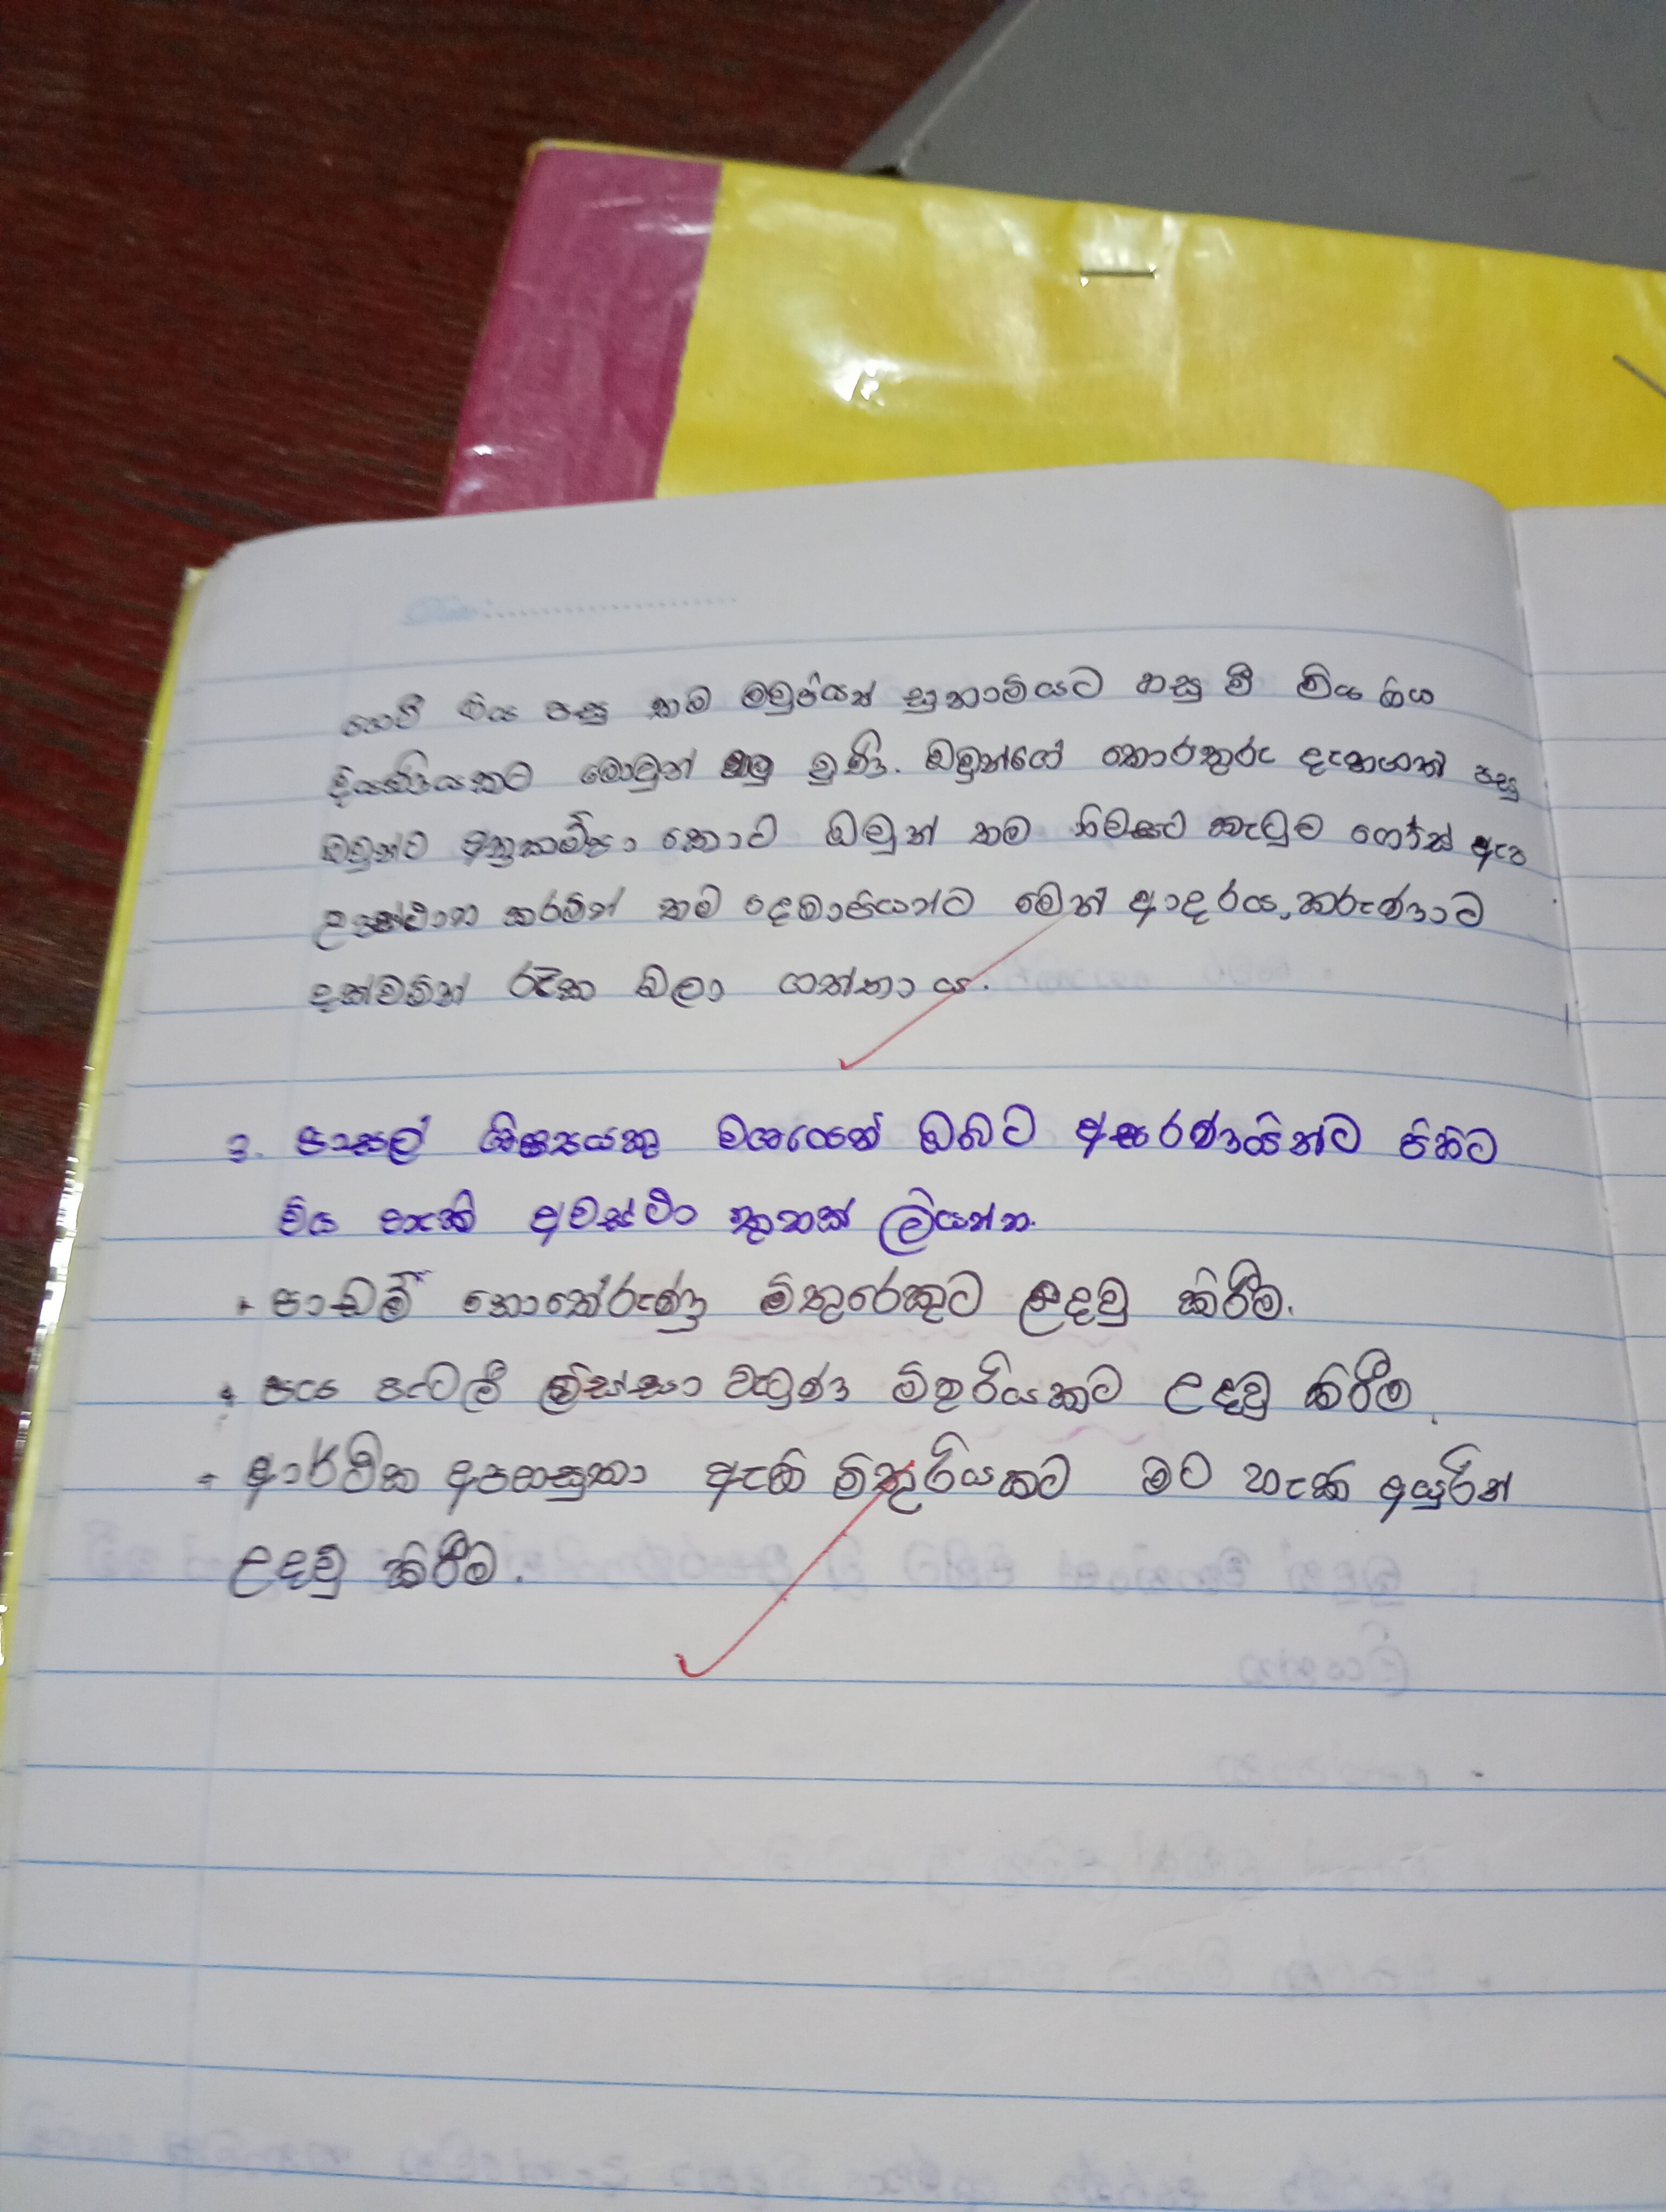 ගිය පසු තම මවුපියන් සුනාමියට හසු වී මිය ගිය
දියණියකට මොවුන් හමු වුණි. ඔවුන්ගේ තොරතුරු දැනගත් පසු
ඔවුන්ට අනුකම්පා කොට ඔවුන් තම නිවසට කැටුව ගොස් ඇප
උපස්ථාන කරමින් තම දෙමාපියන්ට මෙන් ආදරය, කරුණාව
දක්වමින් රැක බලා ගත්තා ය.
3. පාසල් ශිෂ්‍යයකු වශයෙන් ඔබට අසරණයින්ට පිහිට
විය හැකි අවස්ථා තුනක් ලියන්න.
පාඩම් නොතේරුණු මිතුරෙකුට උදවු කිරීම.
පය පැටලී ලිස්සා වැටුණ මිතුරියකුට උදවු කිරීම.
ආර්ථික අපහසුතා ඇති මිතුරියකට මට හැකි අයුරින්
උදවු කිරීම.